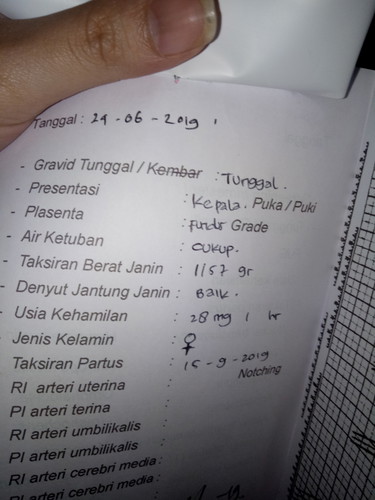 Tanggal : 29 - 06 - 2019
- Gravid Tunggal / Kembar : Tunggal.
- Presentasi : Kepala. Puka / Puki
- Plasenta : fundus Grade
- Air Ketuban : cukup.
- Taksiran Berat Janin : 1157 gr
- Denyut Jantung Janin : Baik.
- Usia Kehamilan : 28 mg 1 hr
Jenis Kelamin : ♀
Taksiran Partus : 15 - 9 - 2019
Notching
RI arteri uterina :
PI arteri terina :
RI arteri umbilikalis :
PI arteri umbilikalis :
RI arteri cerebri media :
PI arteri cerebri media :